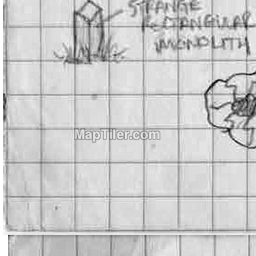 STRANGE
RECTANGULAR
MONOLITH
MapTiler.com